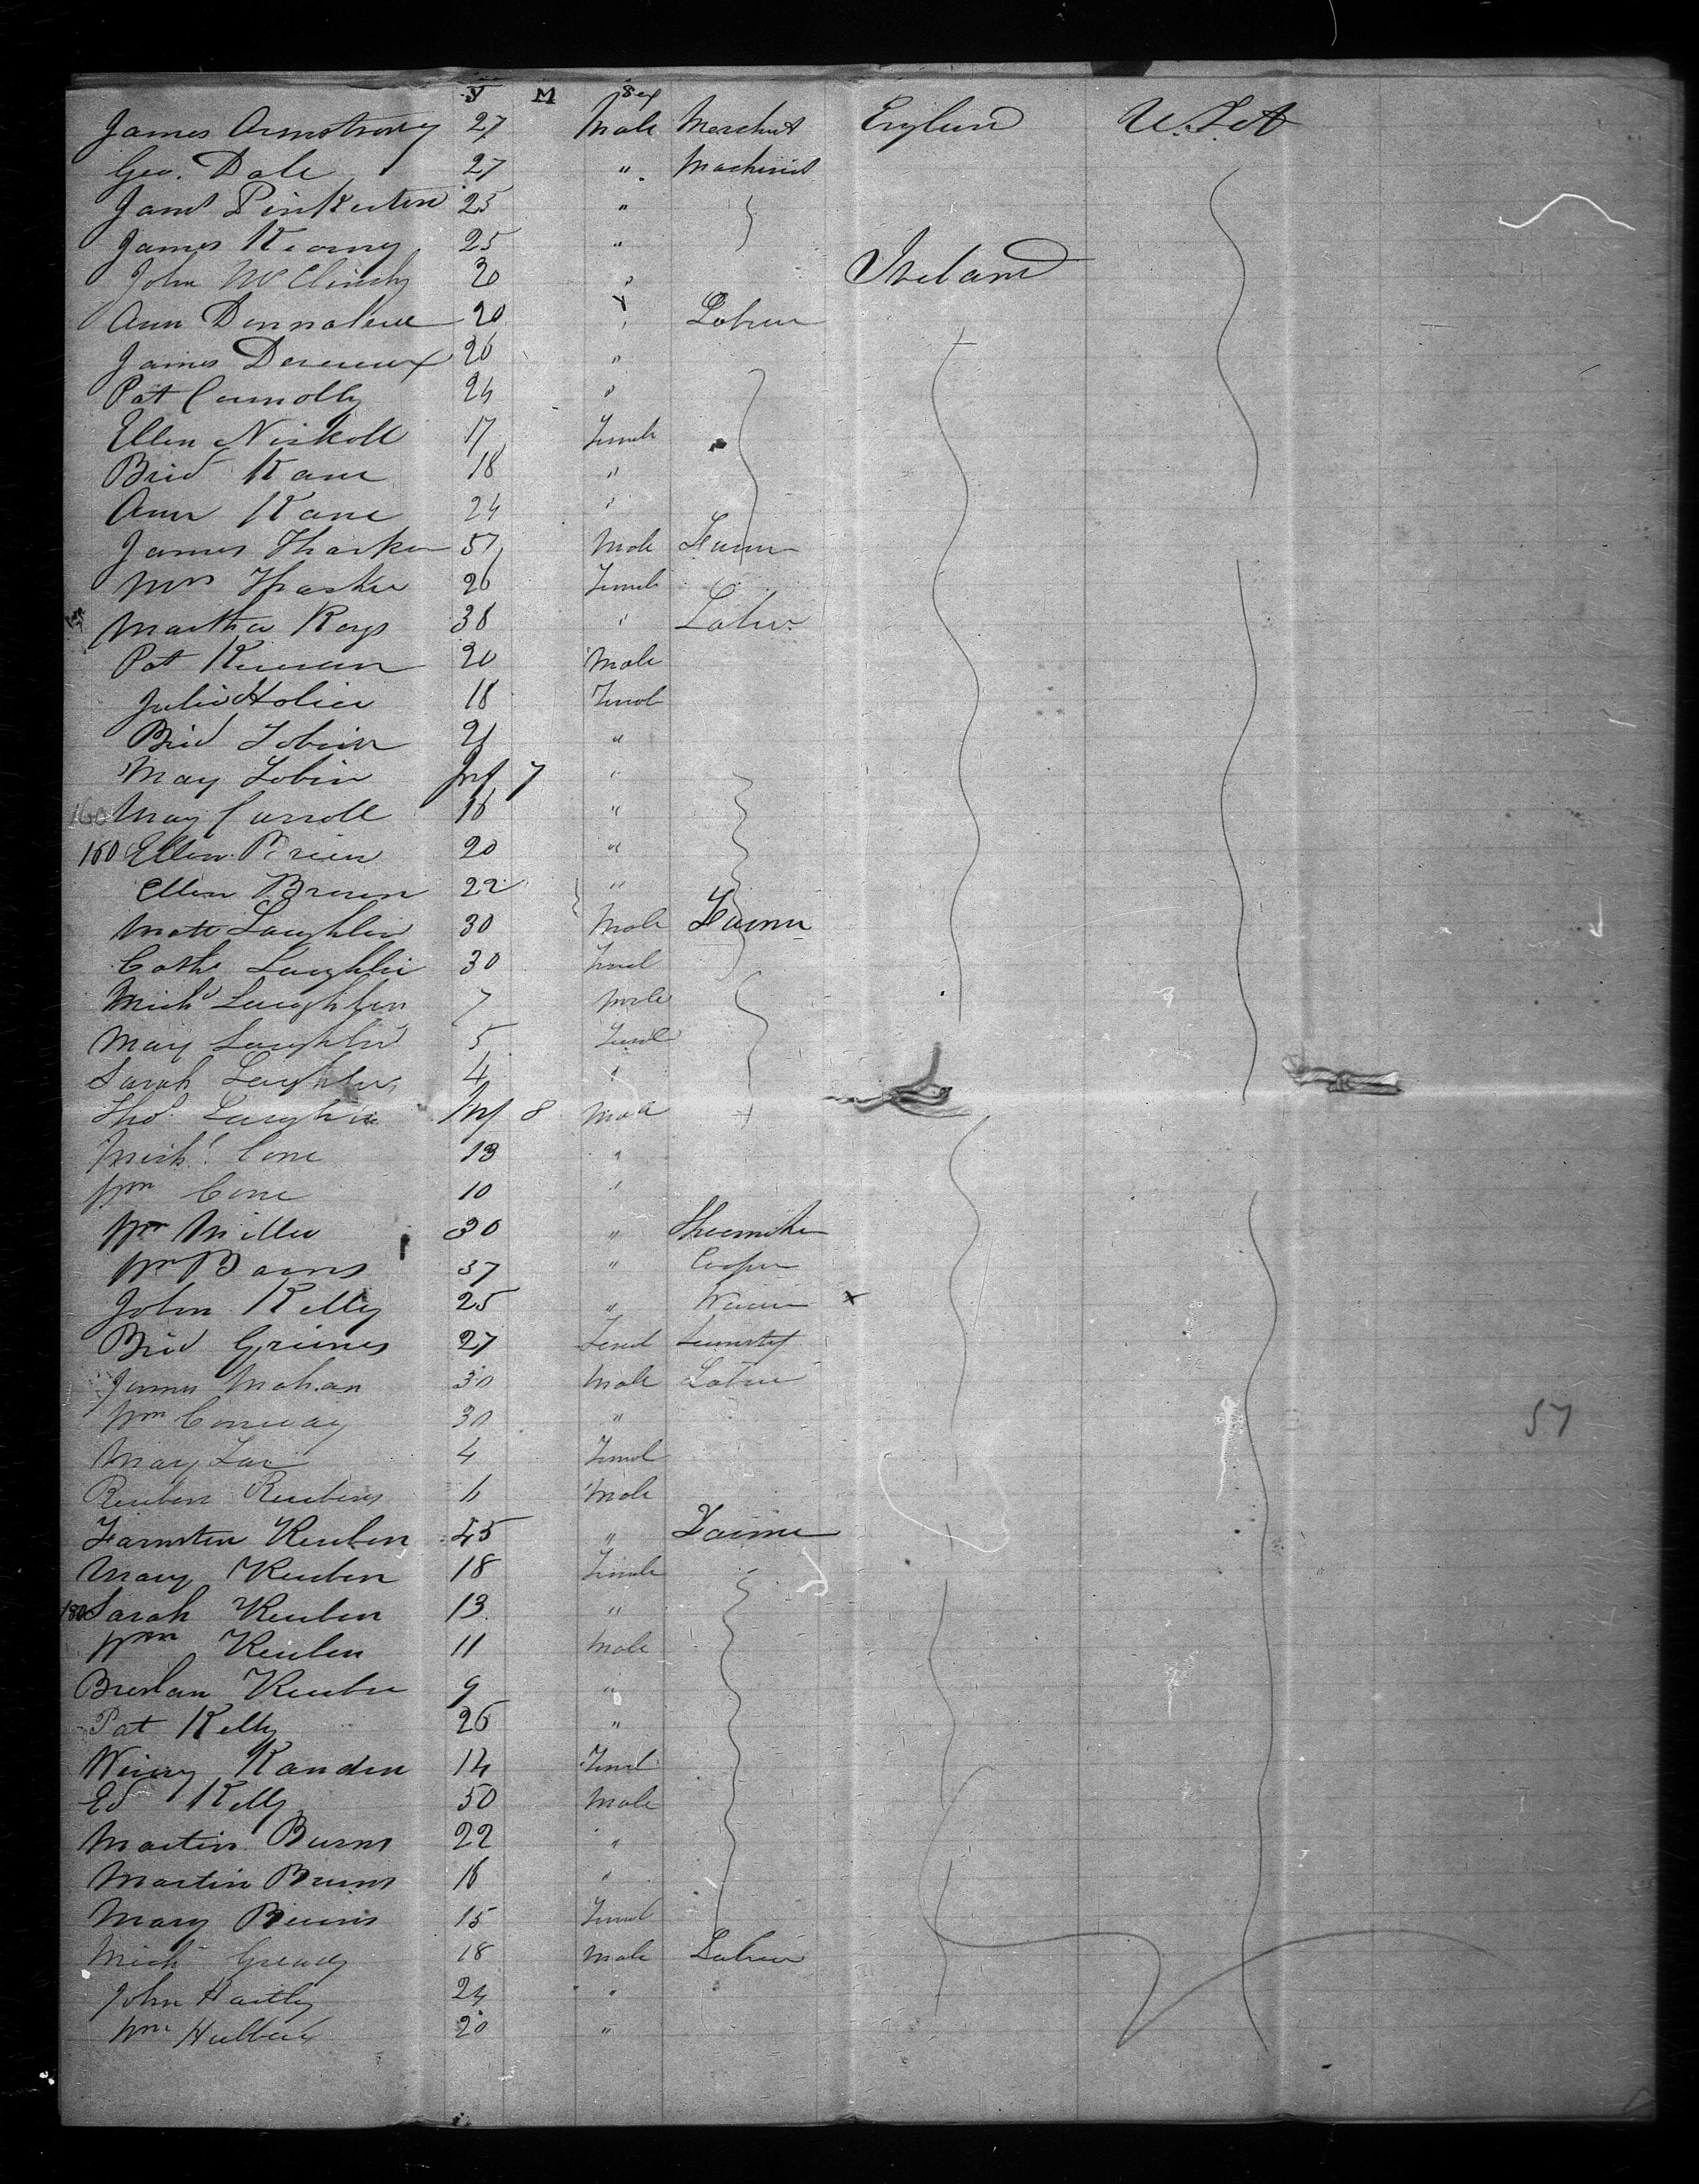 Y M Sex
James Armstrong 27 Male Merchant England U.S.A
Geo. Dale 27 " Machinist
James Pinkerton 25 "
James Kearny 25 "
John McClinchy 20 " Ireland
Ann 20 " Labrer
James Devereux 26 "
Pat Connolly 24 "
Ellen 17 Femal
Brid Kane 18 "
Ann Kane 24 "
James Tharker 57 Male Farmer
Mrs Tharker 26 Female
Martha Rays 38 " Labrer
Pat 20 Male
Julia 18 Femal
Brid Tobin 21 "
May Tobin Inf 7 "
160 May Carroll 18 "
160 Ellen Brien 20 "
Ellen Brown 22 "
Matt Laughlin 30 Male Farmer
Cath Laughlin 30 Femal
Mich Laughlin 7 Male
Mary Laughlin 5 Femal
Sarah Laughlin 4 "
Thos Laughlin Inf 8 Male
Michl Cone 13 "
Wm Cone 10 "
Wm Miller 30 " Shoemaker
Wm Barns 37 " Cooper
John Kelly 25 " x
Brid Grimes 27 Femal
James Mohan 30 Male Labrer
Wm Conway 30 " 57
Mary 4 Femal
Reuben Reubens 6 Male
Reuben 45 " Farmer
Mary Reuben 18 Female
180 Sarah Reuben 13 "
Wm Reuben 11 Male
Reuben 9 "
Pat Kelly 26 "
Winny Randen 14 Femal
Ed Kelly 50 Male
Martin Burns 22 "
Martin Burns 18 "
Mary Burns 15 Femal
Mich Gready 18 Male Labrer
John Hartly 24 "
Wm 20 "